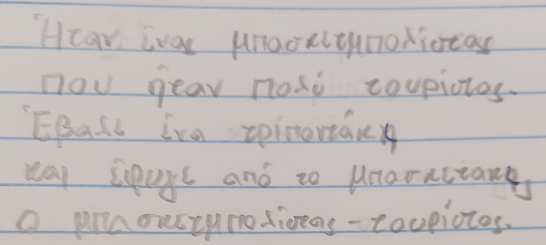 Ήταν ένας μπασκετμπολίστας
που ήταν πολύ τουρίστας.
Έβαλε ένα τριποντάκη
και έφυγε από το μπασκετάκη,
ο μπασκετμπολίστας - τουρίστας.